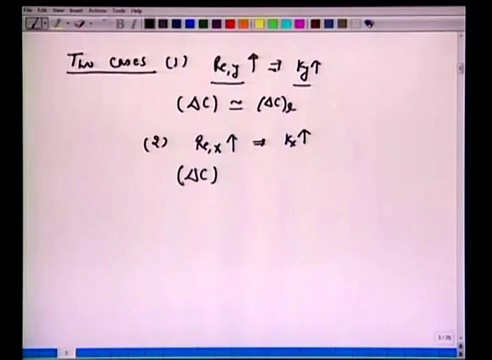 File Edit View Insert Actions Tools Help
Two cases (1) Re,y ↑ ⇒ Ky ↑
(ΔC) ≃ (ΔC)l
(2) Re,x ↑ ⇒ Kx ↑
(ΔC)